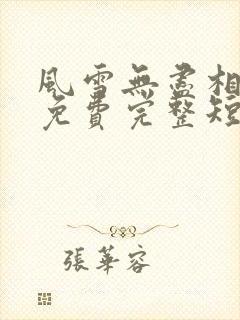 風雪無盡相
免費完整短
張華容